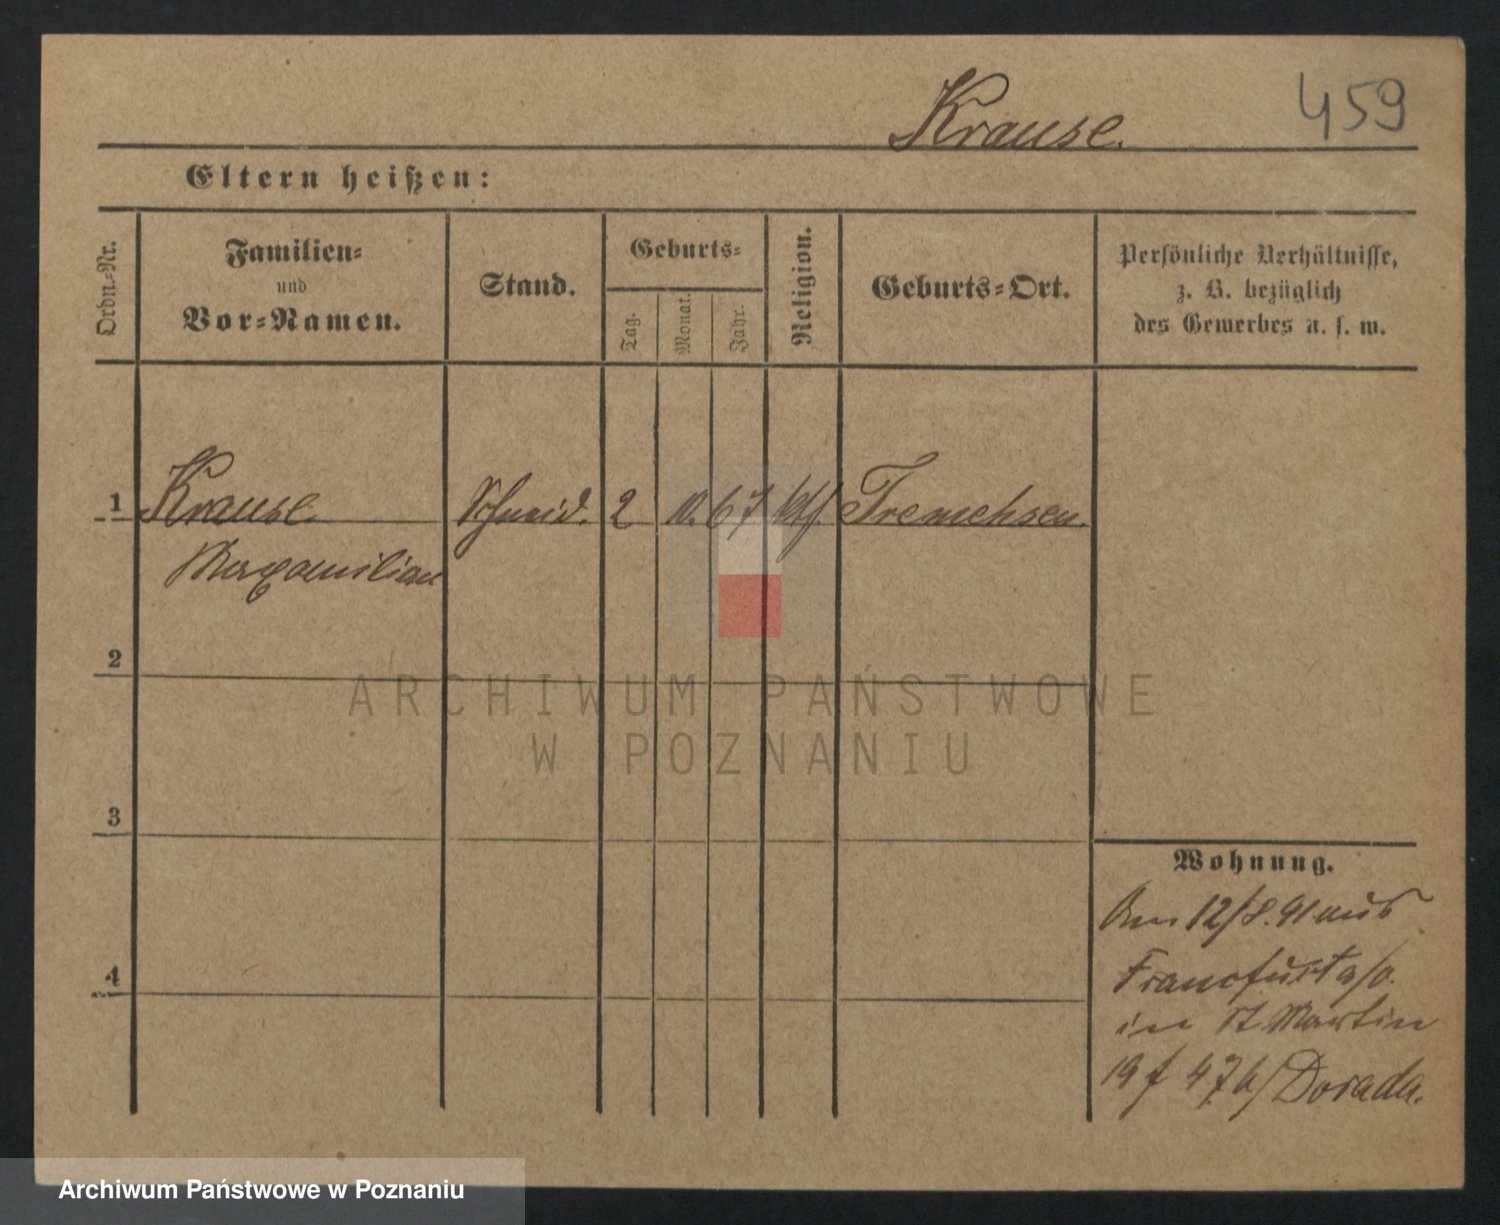 Krause.
459
Eltern heißen:
Ordn.-Nr.
Familien-
und
Vor-Namen.
Stand.
Geburts-
Tag.
Monat.
Jahr.
Religion.
Geburts-Ort.
Persönliche Verhältnisse,
z. B. bezüglich
des Gewerbes u. s. w.
1 Krause Schneid. 2 10. 67 kth. Tremehsen.
Maxamilian
2
ARCHIWUM PAŃSTWOWE
W POZNANIU
3
Wohnung.
Am 12/8. 91 aus
Francfurt a/o.
in St. Martin
4
19 f 47 b/ Dorada.
Archiwum Państwowe w Poznaniu